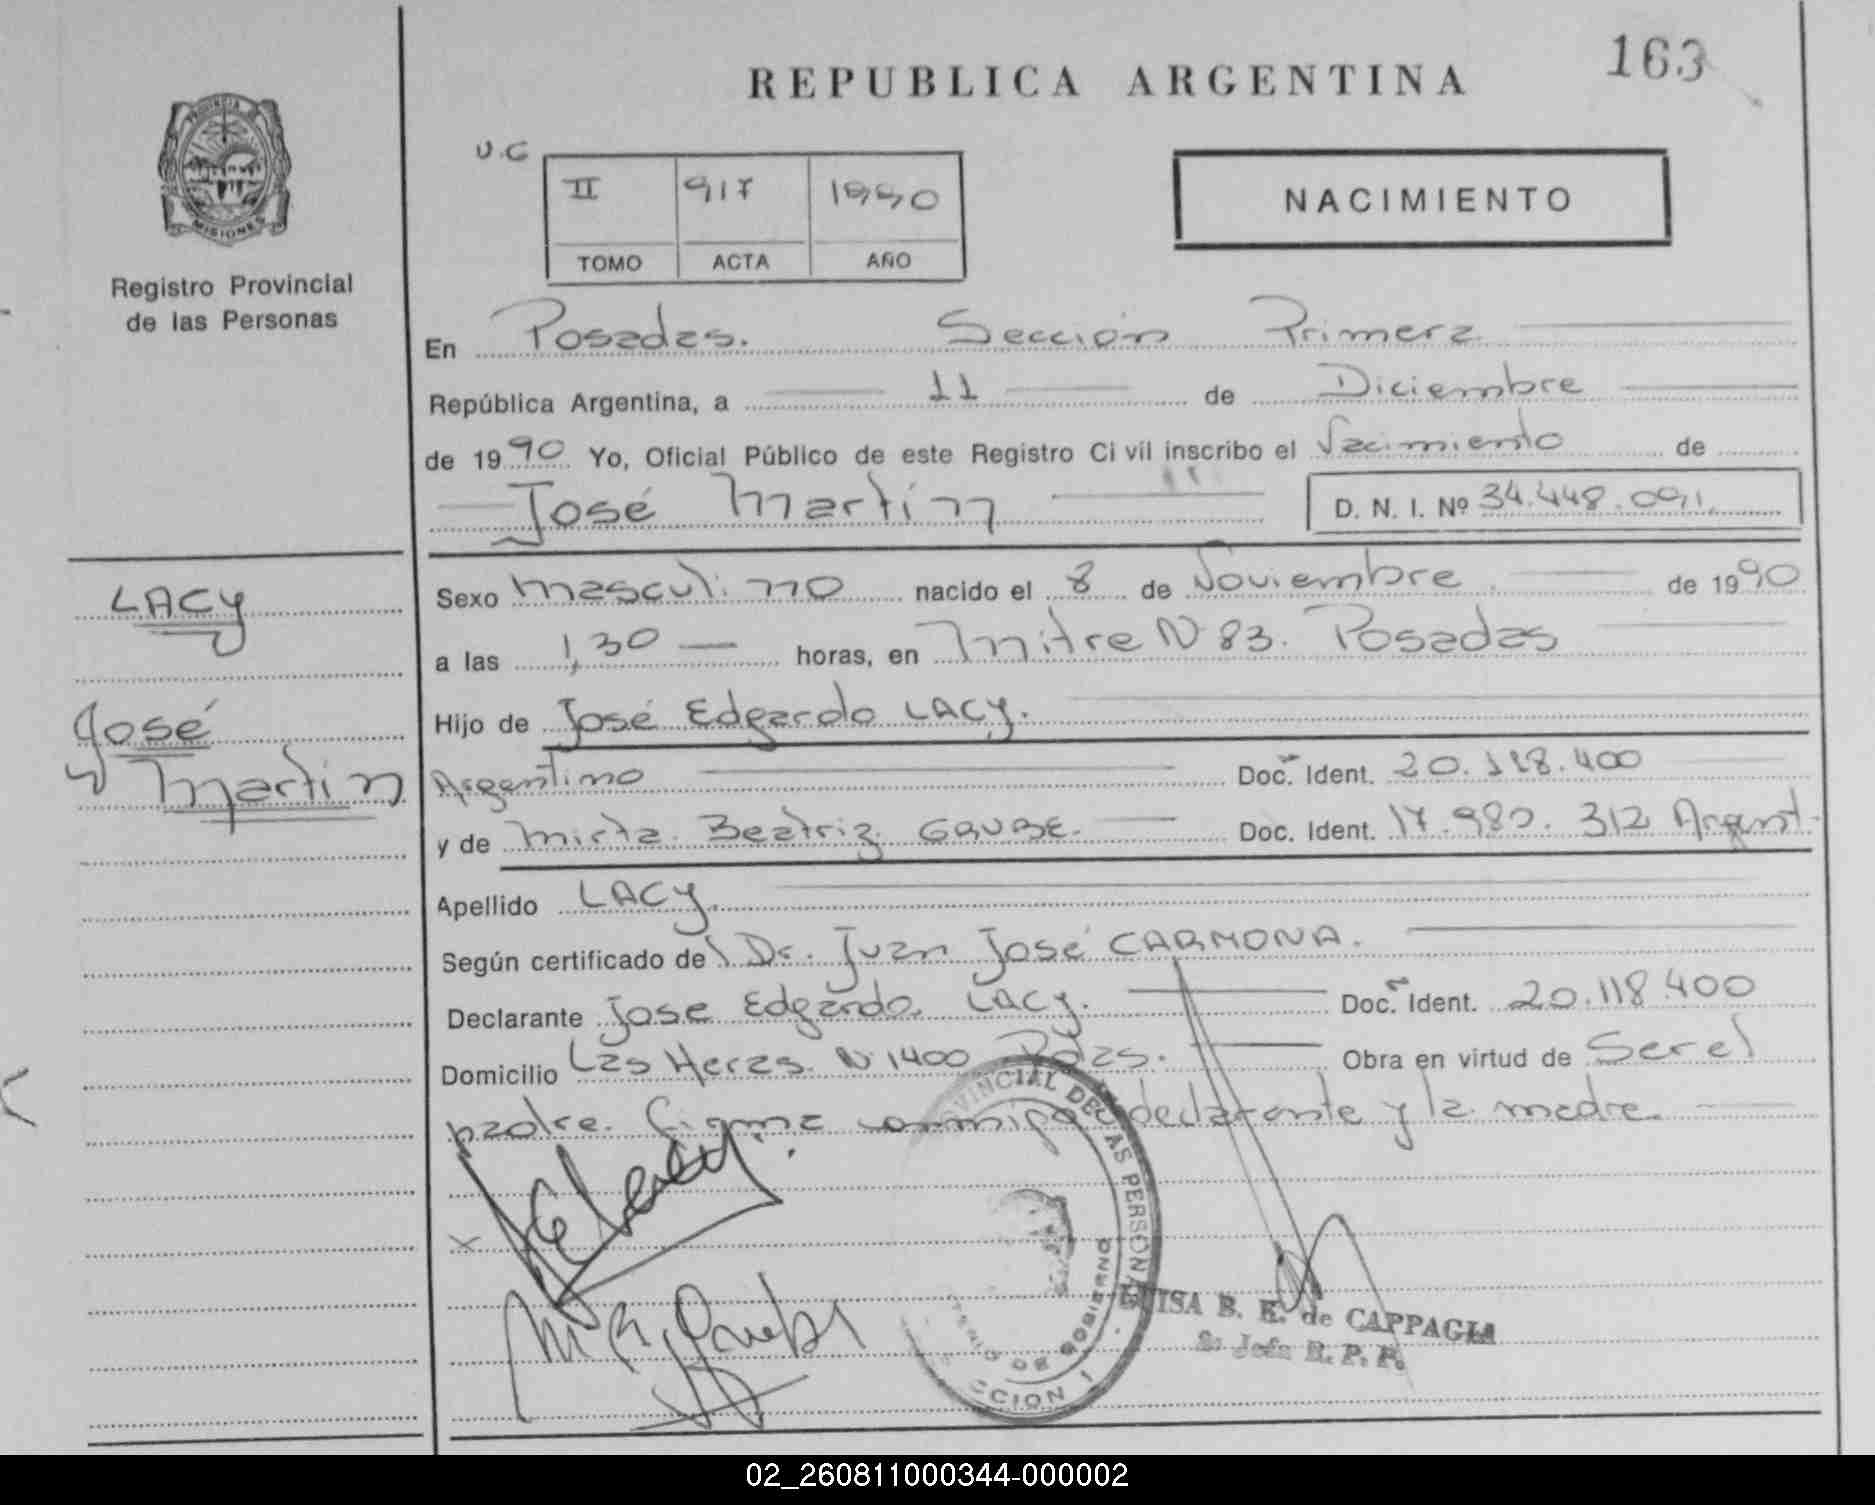 REPUBLICA ARGENTINA
163
PROVINCIA
MISIONES
Registro Provincial
de las Personas
U.C
II 917 1990
TOMO ACTA AÑO
NACIMIENTO
En Posadas. Sección Primera
República Argentina, a 11 de Diciembre
de 1990 Yo, Oficial Público de este Registro Civil inscribo el Nacimiento de
José Martín
D. N. I. Nº 34.448.091.
LACY
José
Martín
Sexo masculino nacido el 8 de Noviembre de 1990
a las 1,30 horas, en Mitre N 83. Posadas
Hijo de José Edgardo LACY.
Argentino Doc. Ident. 20.118.400
y de Mirta Beatriz GRUBE. Doc. Ident. 17.980.312 Argent.
Apellido LACY.
Según certificado del Dr. Juan José CARMONA.
Declarante Jose Edgardo LACY. Doc. Ident. 20.118.400
Domicilio Las Heras N 1400 Pdas. Obra en virtud de Ser el
padre. Firma conmigo declarante y la madre.
VINCIAL DE LAS PERSONA
TERIO DE GOBIERNO
CCION 1
LUISA B. E. de CAPPAGLIA
Jefa R. P. P.
02_260811000344-000002